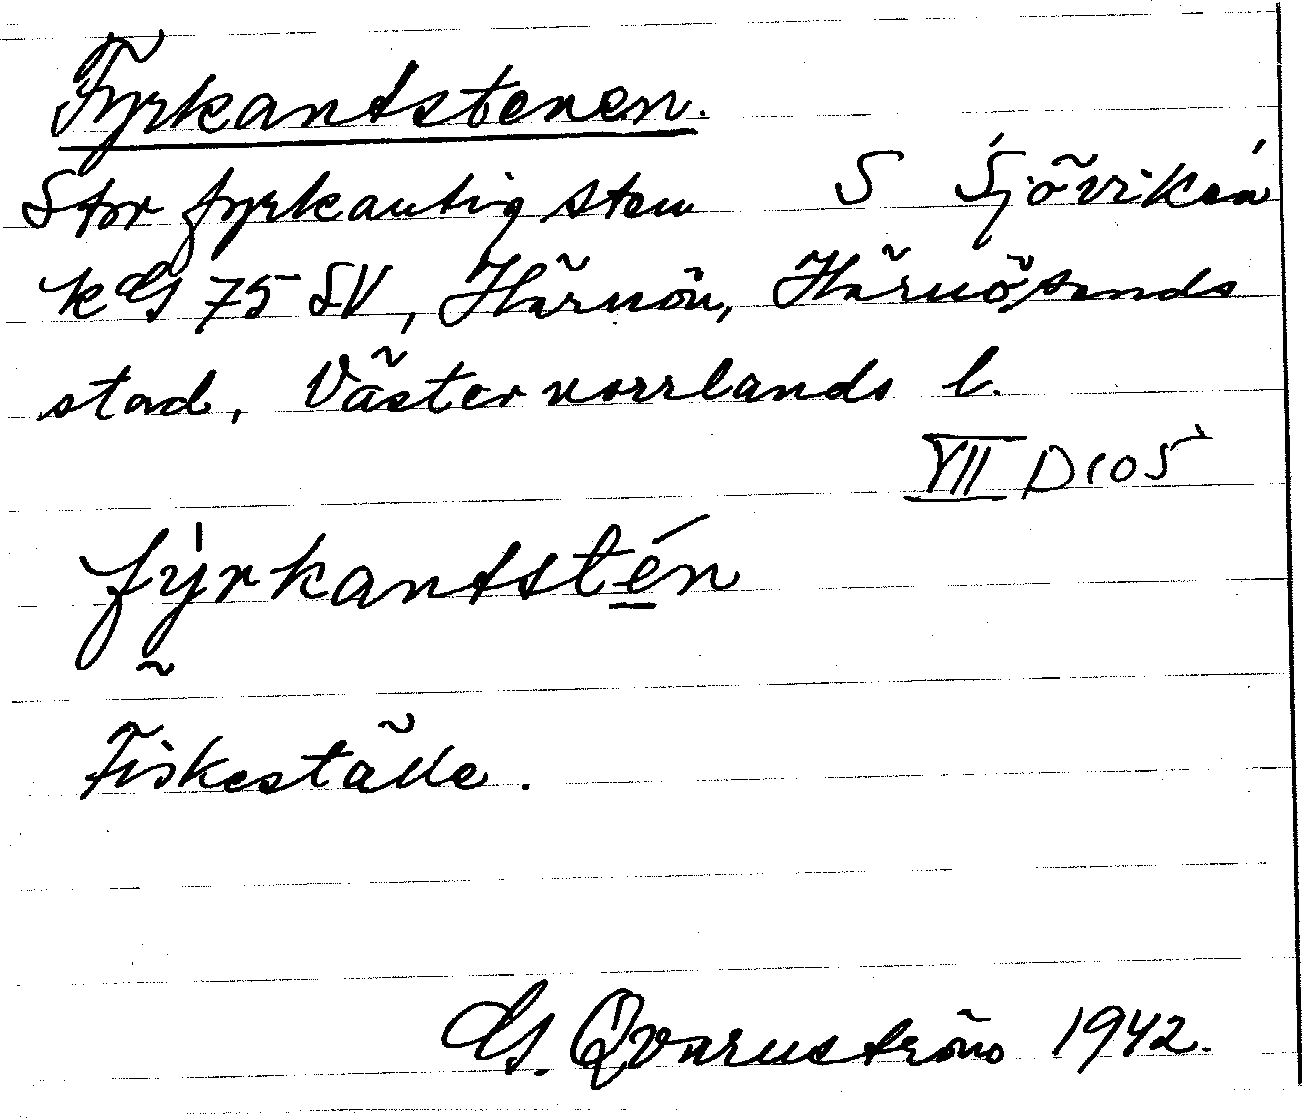 Fyrkantstenen.
Stor fyrkantig sten S Sjöviken
k G 75 SV, Härnön, Härnösands
stad, Västernorrlands l.
VII D105
fyrkantstén
Fiskeställe.
G. Qvarnström 1942.